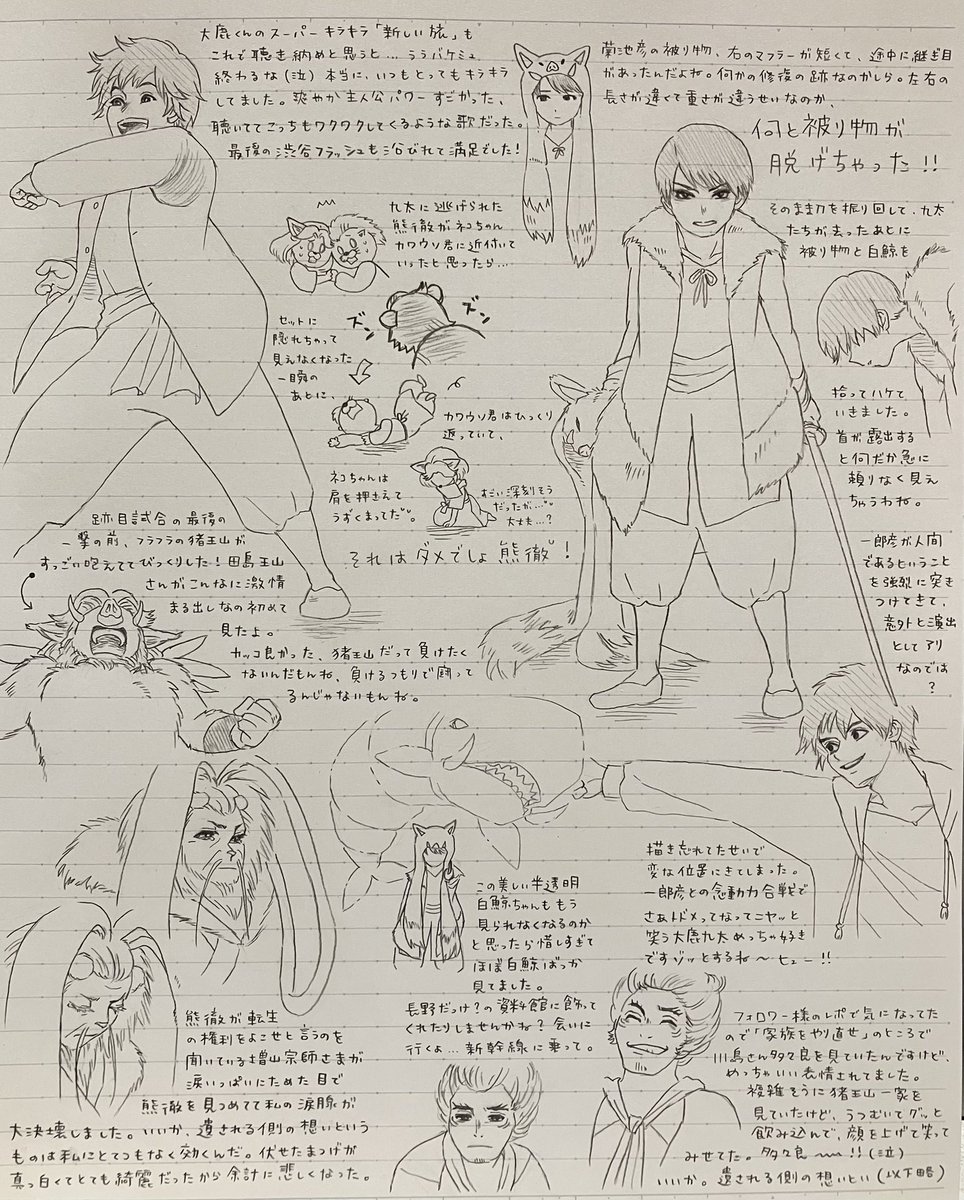 大鹿くんのスーパーキラキラ「新しい旅」も
これで聴き納めと思うと…ううバケミュ
終わるな(泣)本当に、いつもとってもキラキラ
してました。爽やか主人公パワーすごかった、
聴いててこっちもワクワクしてくるような歌だった。
最後の渋谷フラッシュも浴びれて満足でした!
菊池彦の被り物、右のマフラーが短くて、途中に継ぎ目
があったんだよね。何かの修復の跡なのかしら。左右の
長さが違くて重さが違うせいなのか、
何と被り物が
脱げちゃった!!
そのまま刀を振り回して、九太
たちが去ったあとに
被り物と白鯨を
拾ってハケて
いきました。
首が露出する
と何だか急に
頼りなく見え
ちゃうわね。
一郎彦が人間
であるということ
を強烈に突き
つけてきて、
意外と演出
としてアリ
なのでは
?
九太に逃げられた
熊徹がネコちゃん
カワウソ君に近付いて
いったと思ったら…
ズン
ズン
セットに
隠れちゃって
見えなくなった
一瞬の
あとに、
カワウソ君はひっくり
返っていて、
ネコちゃんは
肩を押さえて
うずくまってた。
すごい深刻そう
だったが…
大丈夫…?
それはダメでしょ熊徹!
跡目試合の最後の
一撃の前、フラフラの猪王山が
すっごい吠えててびっくりした!田島王山
さんがこんなに激情
まる出しなの初めて
見たよ。
カッコ良かった、猪王山だって負けたく
ないんだもんね、負けるつもりで闘って
るんじゃないもんね。
描き忘れてたせいで
変な位置にきてしまった。
一郎彦との念動力合戦で
さぁトドメってなってニヤッと
笑う大鹿九太めっちゃ好き
ですゾッとするね〜ヒュー!!
この美しい半透明
白鯨ちゃんももう
見られなくなるのか
と思ったら惜しすぎて
ほぼ白鯨ばっか
見てました。
長野だっけ?の資料館に飾って
くれたりしませんかね?会いに
行くよ…新幹線に乗って。
熊徹が転生
の権利をよこせと言うのを
聞いている増山宗師さまが
涙いっぱいにためた目で
熊徹を見つめてて私の涙腺が
大決壊しました。いいか、遺される側の想いという
ものは私にとてつもなく効くんだ。伏せたまつげが
真っ白くてとても綺麗だったから余計に悲しくなった。
フォロワー様のレポで気になってた
ので「家族をやり直せ」のところで
川島さん多々良を見ていたんですけど、
めっちゃいい表情されてました。
複雑そうに猪王山一家を
見ていたけど、うつむいてグッと
飲み込んで、顔を上げて笑って
みせてた。多々良〜!!(泣)
いいか。遺される側の想いとい(以下略)